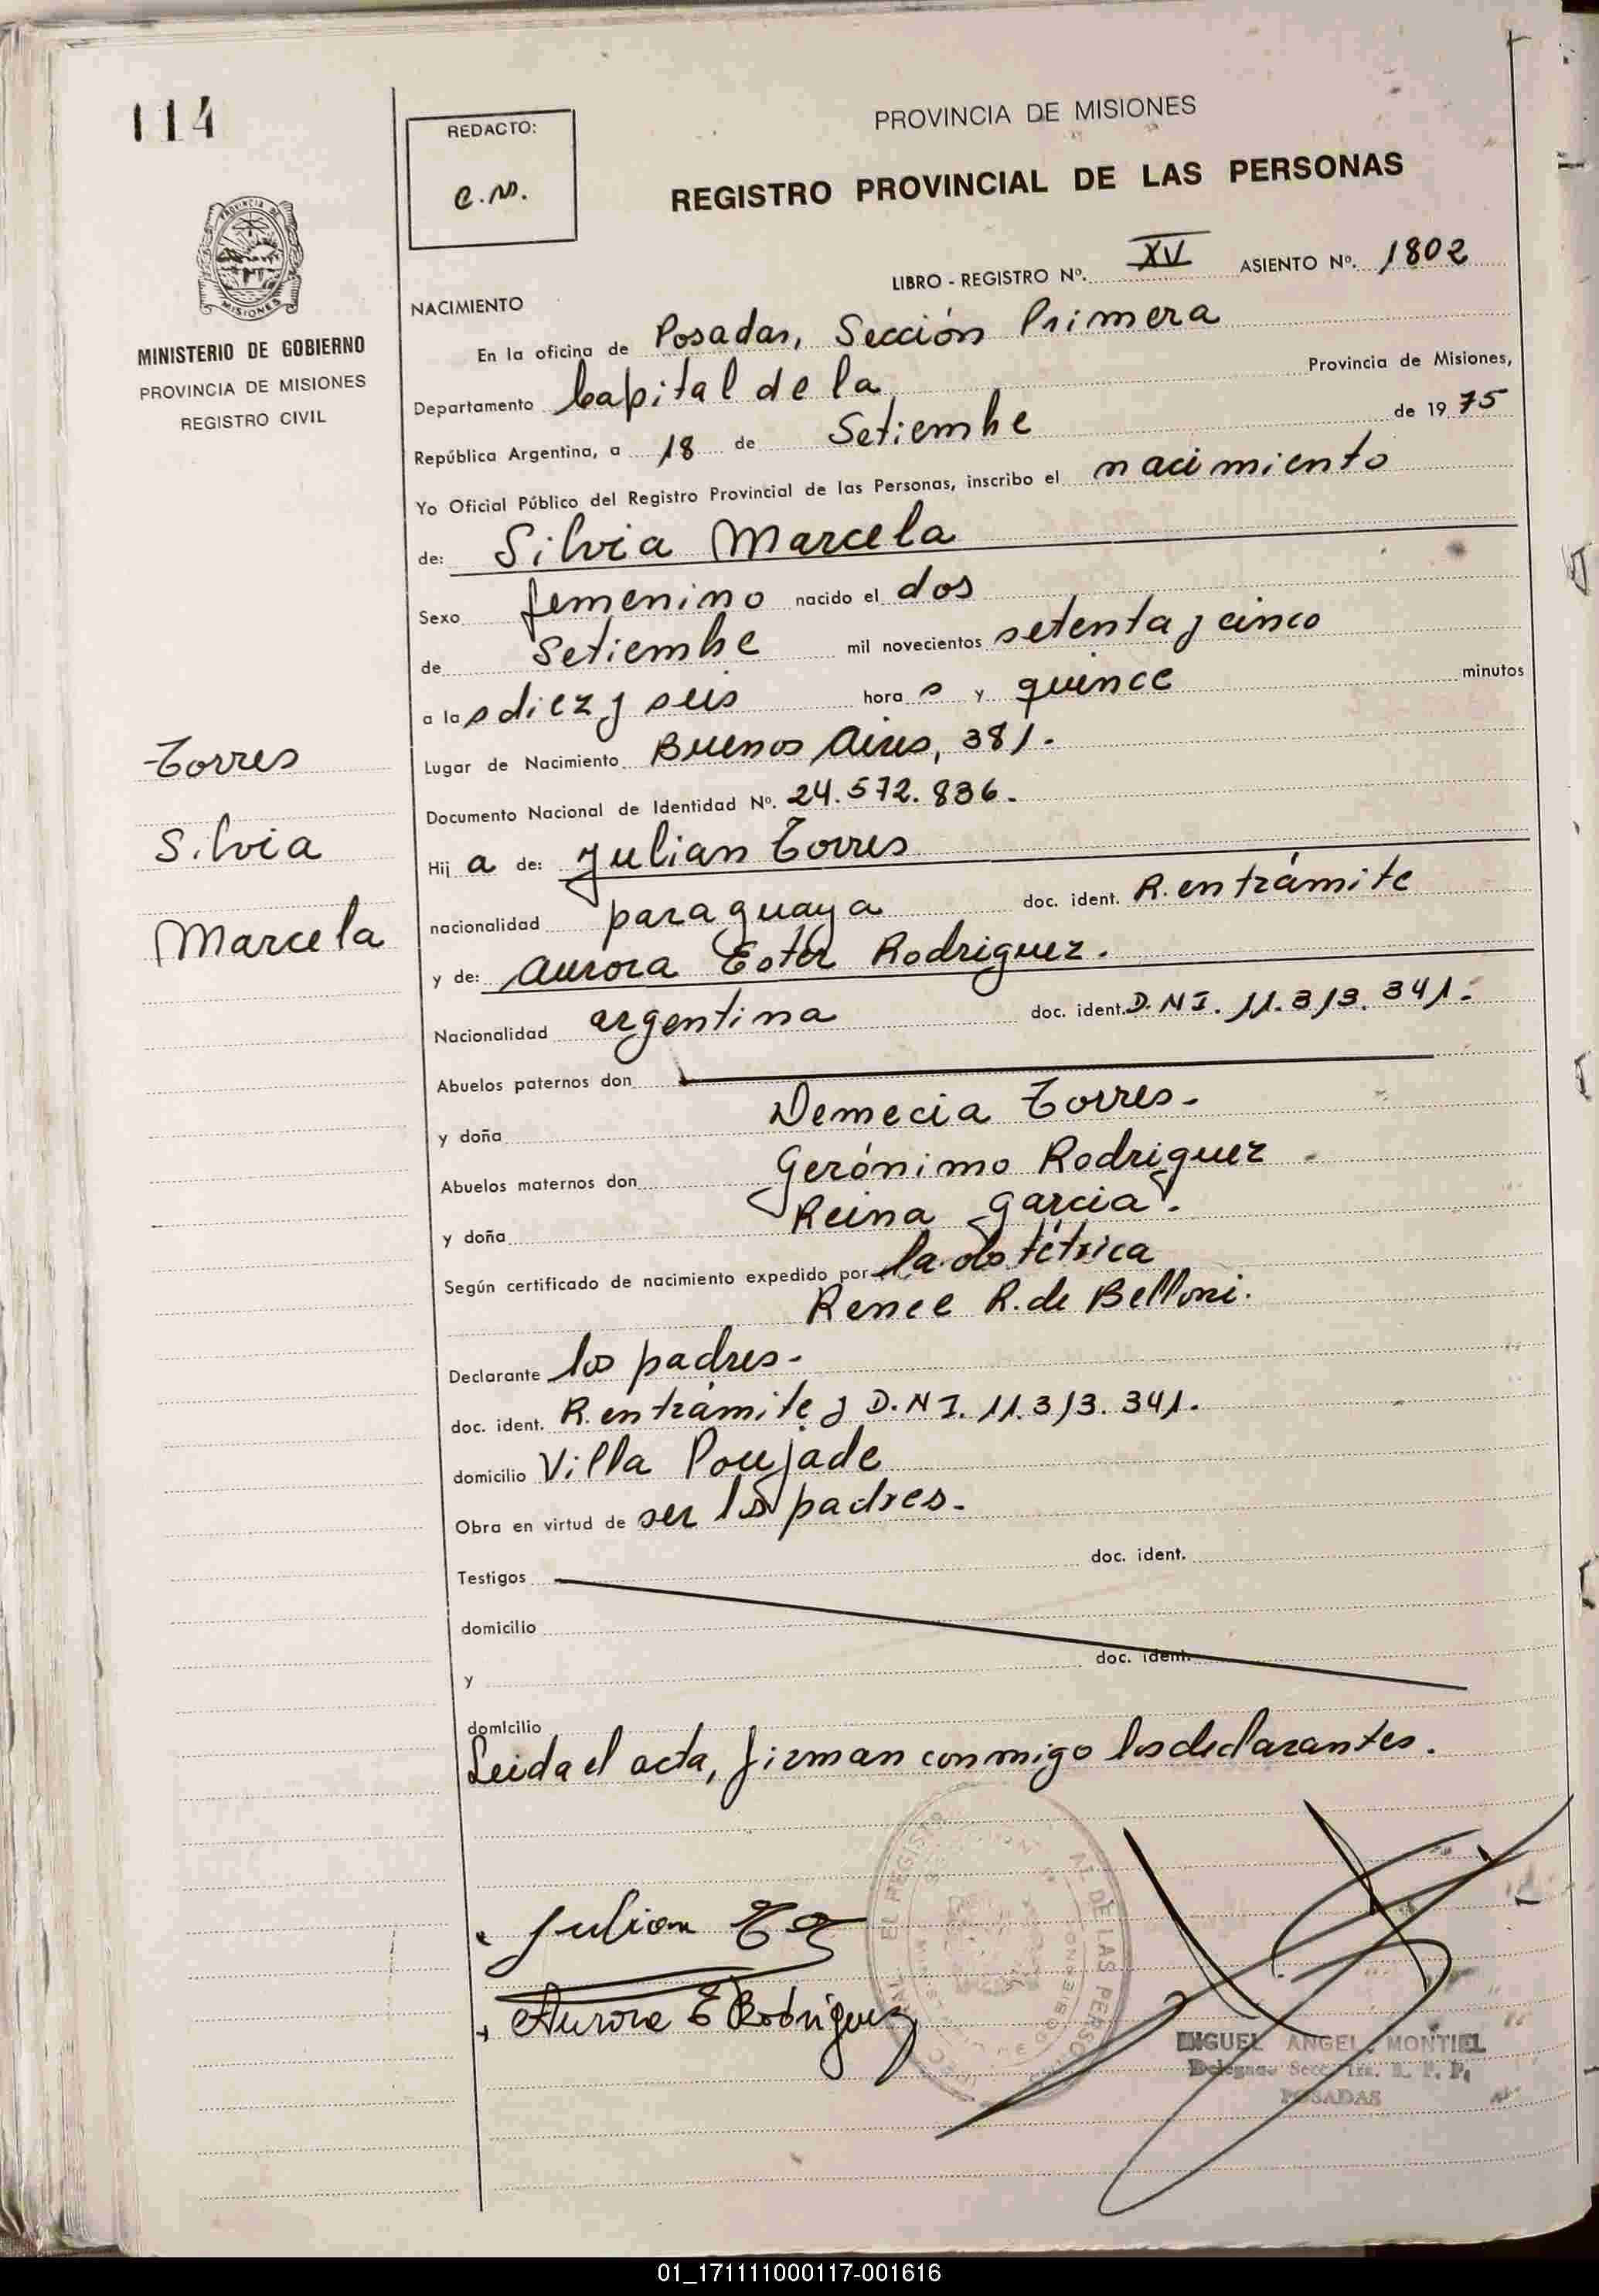 114
REDACTO:
C.N.
PROVINCIA DE MISIONES
REGISTRO PROVINCIAL DE LAS PERSONAS
LIBRO - REGISTRO Nº. XV ASIENTO Nº. 1802
MINISTERIO DE GOBIERNO
PROVINCIA DE MISIONES
REGISTRO CIVIL
NACIMIENTO
En la oficina de Posadas, Sección Primera
Departamento Capital de la Provincia de Misiones,
República Argentina, a 18 de Setiembre de 1975
Yo Oficial Público del Registro Provincial de las Personas, inscribo el nacimiento
de: Silvia Marcela
Sexo femenino nacido el dos
de Setiembre mil novecientos setenta y cinco
a las diez y seis horas y quince minutos
Lugar de Nacimiento Buenos Aires, 381.
Documento Nacional de Identidad Nº. 24.572.836.
Torres
Silvia
Marcela
Hija de: Julian Torres
nacionalidad paraguaya doc. ident. R. en trámite
y de: Aurora Ester Rodriguez.
Nacionalidad argentina doc. ident. D.N.I. 11.313.341.
Abuelos paternos don
y doña Demecia Torres.
Abuelos maternos don Gerónimo Rodriguez
y doña Reina Garcia.
Según certificado de nacimiento expedido por la obstétrica
Renee R. de Belloni.
Declarante los padres.
doc. ident. R. en trámite y D.N.I. 11.313.341.
domicilio Villa Poujade
Obra en virtud de ser los padres.
Testigos doc. ident.
domicilio
y doc. ident.
domicilio
Leida el acta, firman conmigo los declarantes.
Julian
Aurora E Rodriguez
MIGUEL ANGEL MONTIEL
POSADAS
01_171111000117-001616